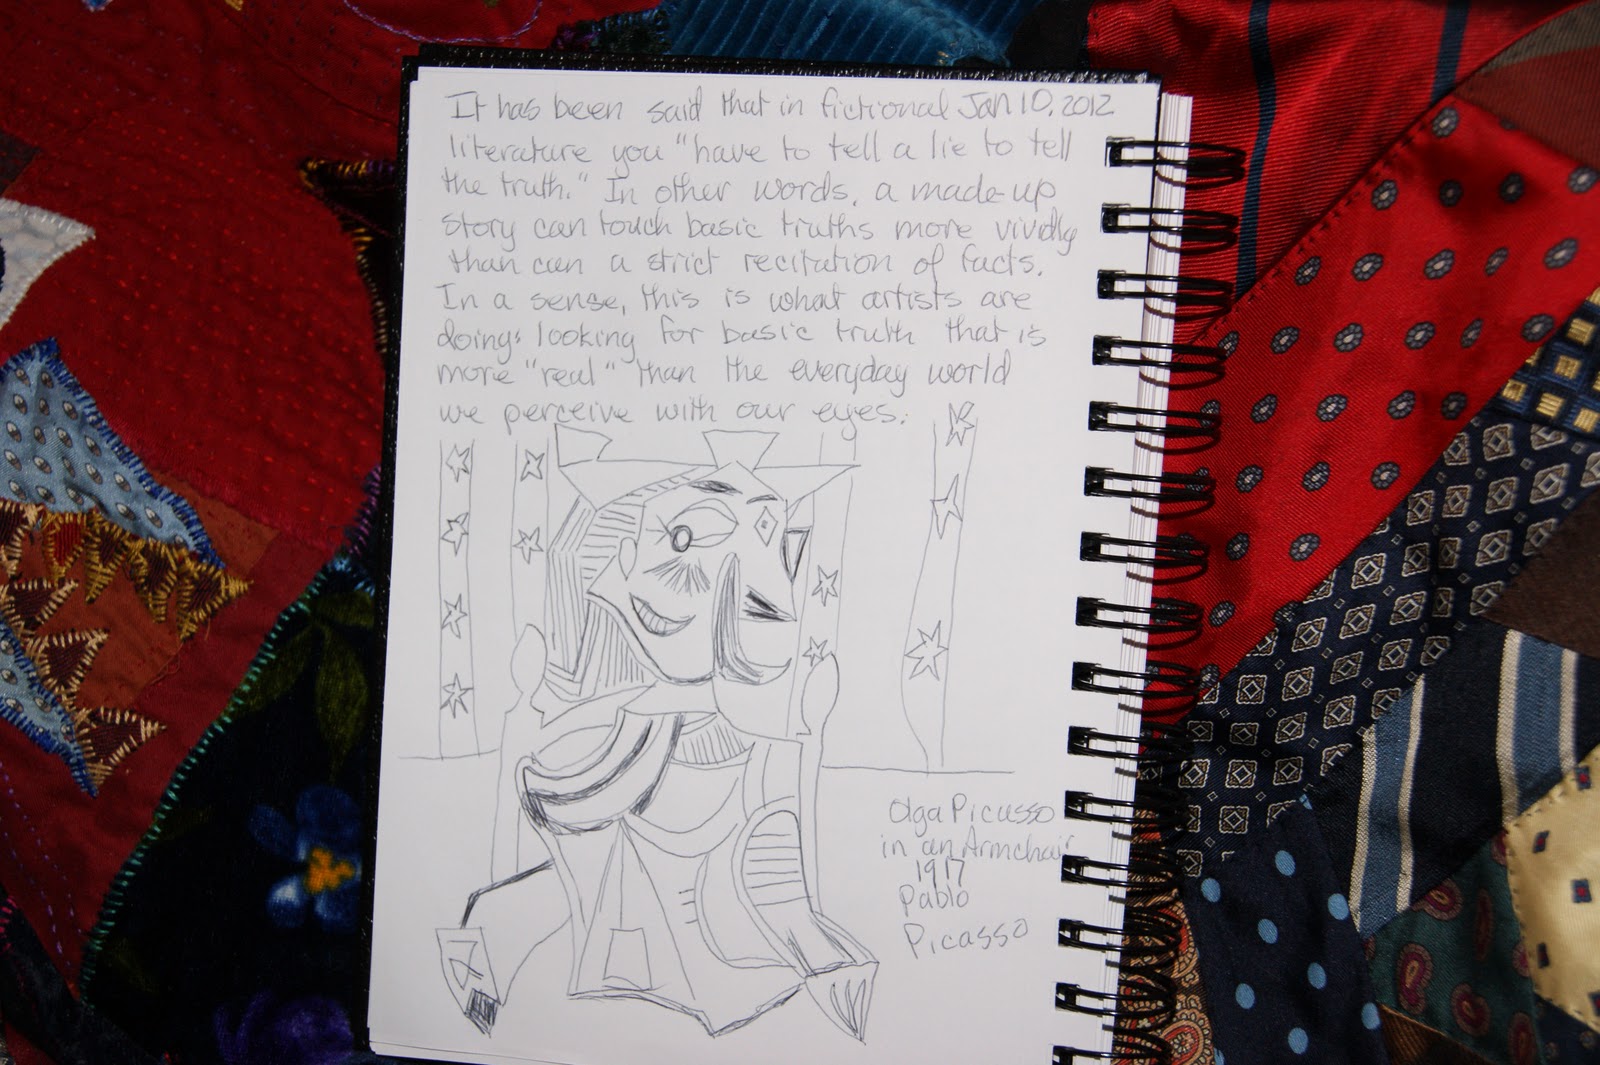 It has been said that in fictional Jan 10, 2012
literature you "have to tell a lie to tell
the truth." In other words, a made-up
story can touch basic truths more vividly
than can a strict recitation of facts.
In a sense, this is what artists are
doing: looking for basic truth that is
more "real" than the everyday world
we perceive with our eyes.
Olga Picusso
in an Armchair
1917
Pablo
Picasso